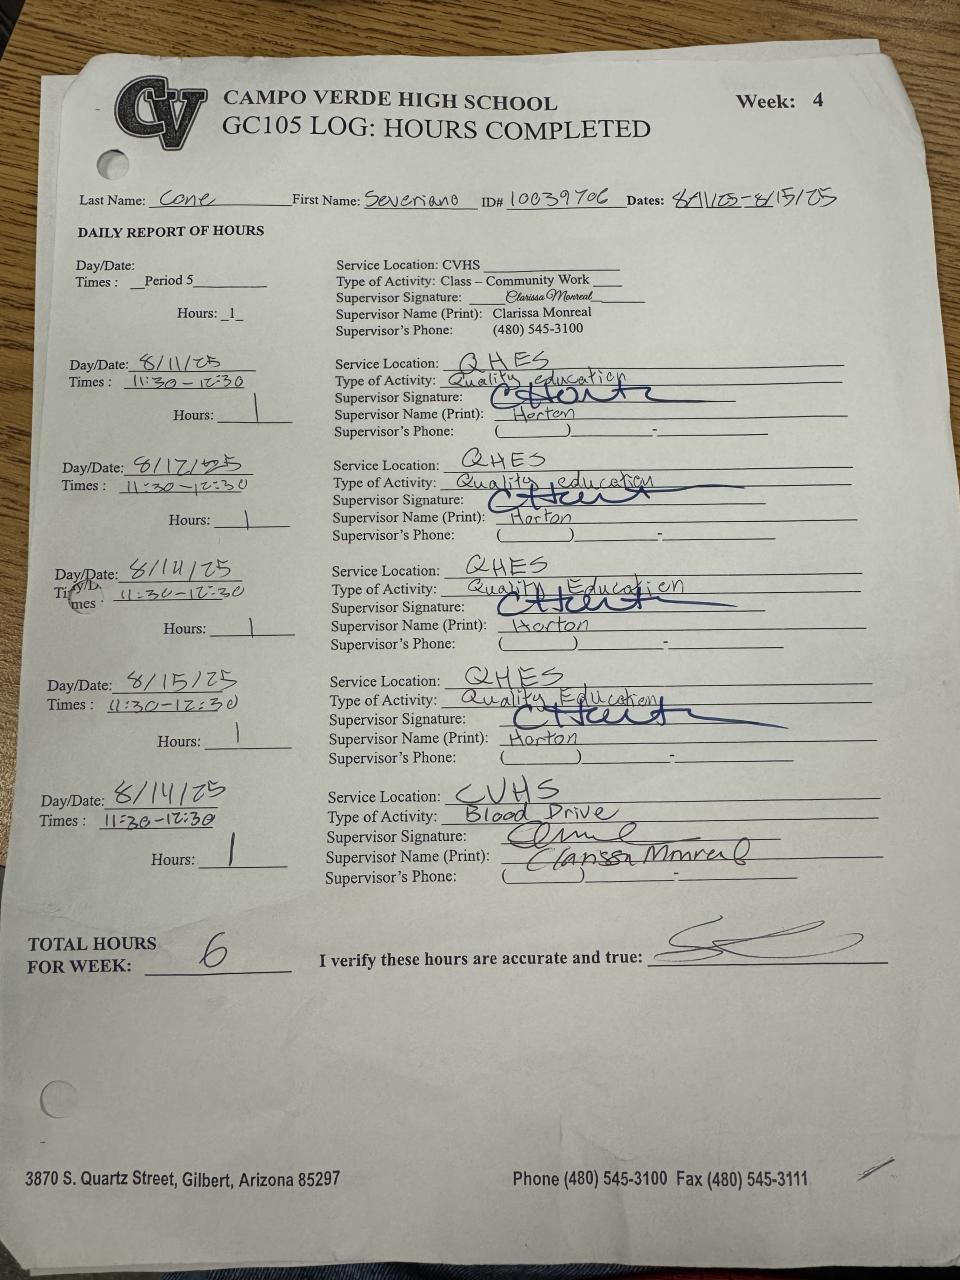 CV
CAMPO VERDE HIGH SCHOOL
Week: 4
GC105 LOG: HOURS COMPLETED
Last Name: Cone First Name: Severiano ID# 10039706 Dates: 8/11/25-8/15/25
DAILY REPORT OF HOURS
Day/Date:
Times : __Period 5______
Hours: _1_
Service Location: CVHS
Type of Activity: Class – Community Work
Supervisor Signature: Clarissa Monreal
Supervisor Name (Print): Clarissa Monreal
Supervisor's Phone: (480) 545-3100
Day/Date: 8/11/25
Times : 11:30-12:30
Hours: 1
Service Location: QHES
Type of Activity: Quality education
Supervisor Signature:
Supervisor Name (Print): Horton
Supervisor's Phone: (____)______-______
Day/Date: 8/12/25
Times : 11:30-12:30
Hours: 1
Service Location: QHES
Type of Activity: Quality education
Supervisor Signature:
Supervisor Name (Print): Horton
Supervisor's Phone: (____)______-______
Day/Date: 8/14/25
Times : 11:30-12:30
Hours: 1
Service Location: QHES
Type of Activity: Quality Education
Supervisor Signature:
Supervisor Name (Print): Horton
Supervisor's Phone: (____)______-______
Day/Date: 8/15/25
Times : 11:30-12:30
Hours: 1
Service Location: QHES
Type of Activity: Quality Education
Supervisor Signature:
Supervisor Name (Print): Horton
Supervisor's Phone: (____)______-______
Day/Date: 8/14/25
Times : 11:30-12:30
Hours: 1
Service Location: CVHS
Type of Activity: Blood Drive
Supervisor Signature:
Supervisor Name (Print): Clarissa Monreal
Supervisor's Phone: (____)______-______
TOTAL HOURS
FOR WEEK: 6
I verify these hours are accurate and true:
3870 S. Quartz Street, Gilbert, Arizona 85297
Phone (480) 545-3100 Fax (480) 545-3111